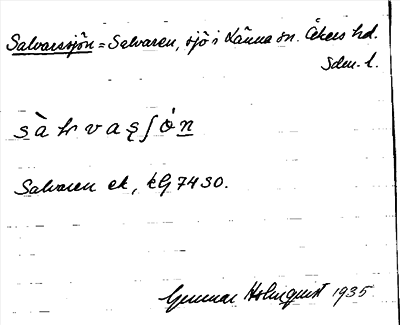 Salvarssjön = Salvaren, sjö i Länna sn. Åkers hd.
Sdm. l.
Salvaren ek, kG 7430.
Gunnar Holmquist 1935